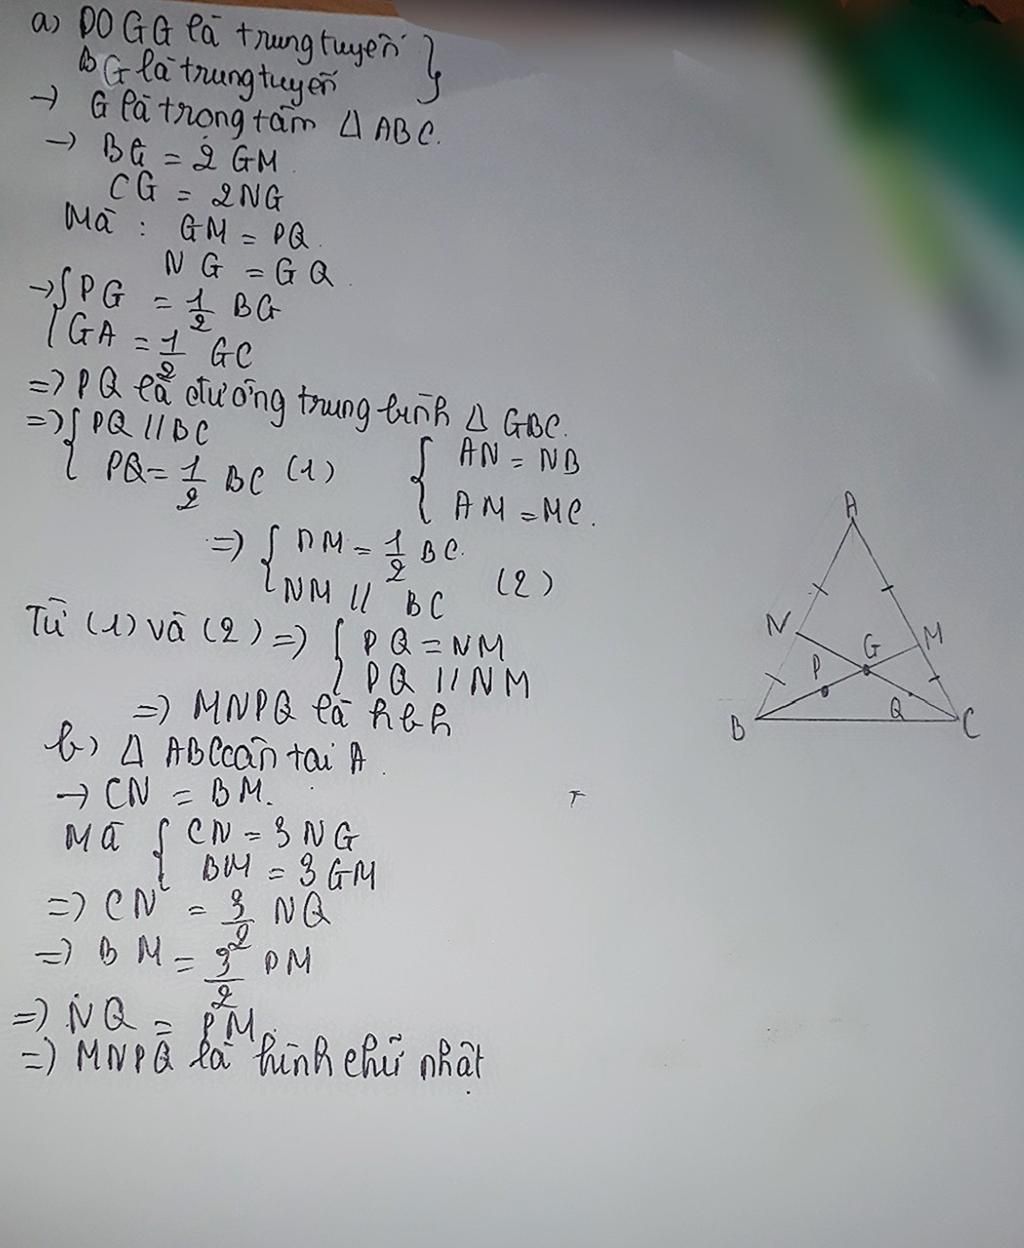 a) DO GG là trung tuyến }
BG là trung tuyến
→ G là trọng tâm Δ ABC.
→ BG = 2 GM.
CG = 2NG
Mà : GM = PQ.
NG = GQ.
→ { PG = 1/2 BG
{ GA = 1/2 GC
=> PQ là đường trung bình Δ GBC.
=> { PQ // BC
{ PQ = 1/2 BC (1) { AN = NB
{ AM = MC.
=> { NM = 1/2 BC.
{ NM // BC (2)
Từ (1) và (2) => { PQ = NM
{ PQ // NM
=> MNPQ là hbh
b) Δ ABC cân tại A.
→ CN = BM.
Mà { CN = 3 NG
{ BM = 3 GM
=> CN = 3/2 NQ
=> BM = 3/2 PM
=> NQ = PM.
=> MNPQ là hình chữ nhật
A
N
M
G
P
B
Q
C